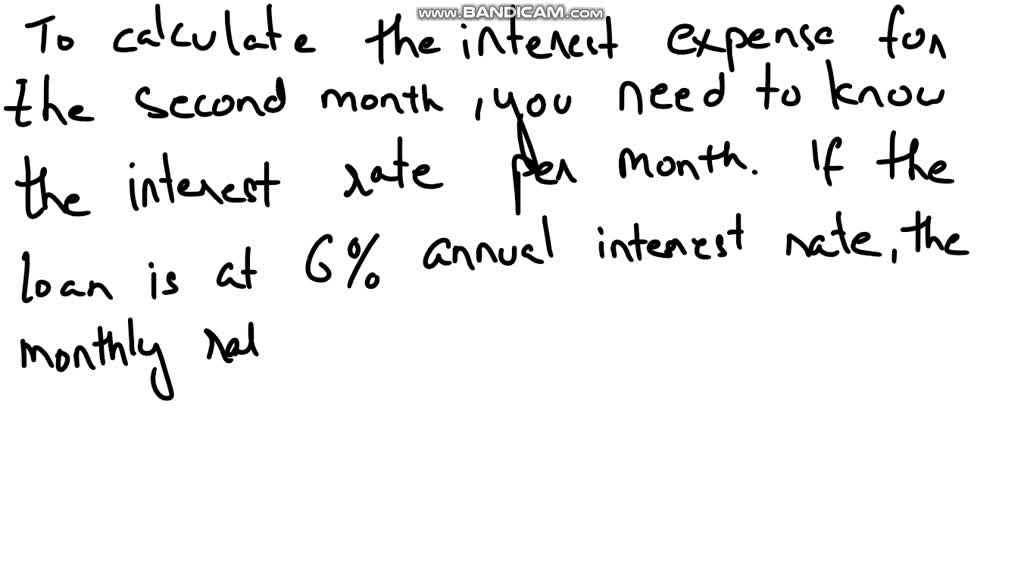 www.BANDICAM.com
To calculate the interest expense for
the second month, you need to know
the interest rate per month. If the
loan is at 6% annual interest rate, the
monthly rat